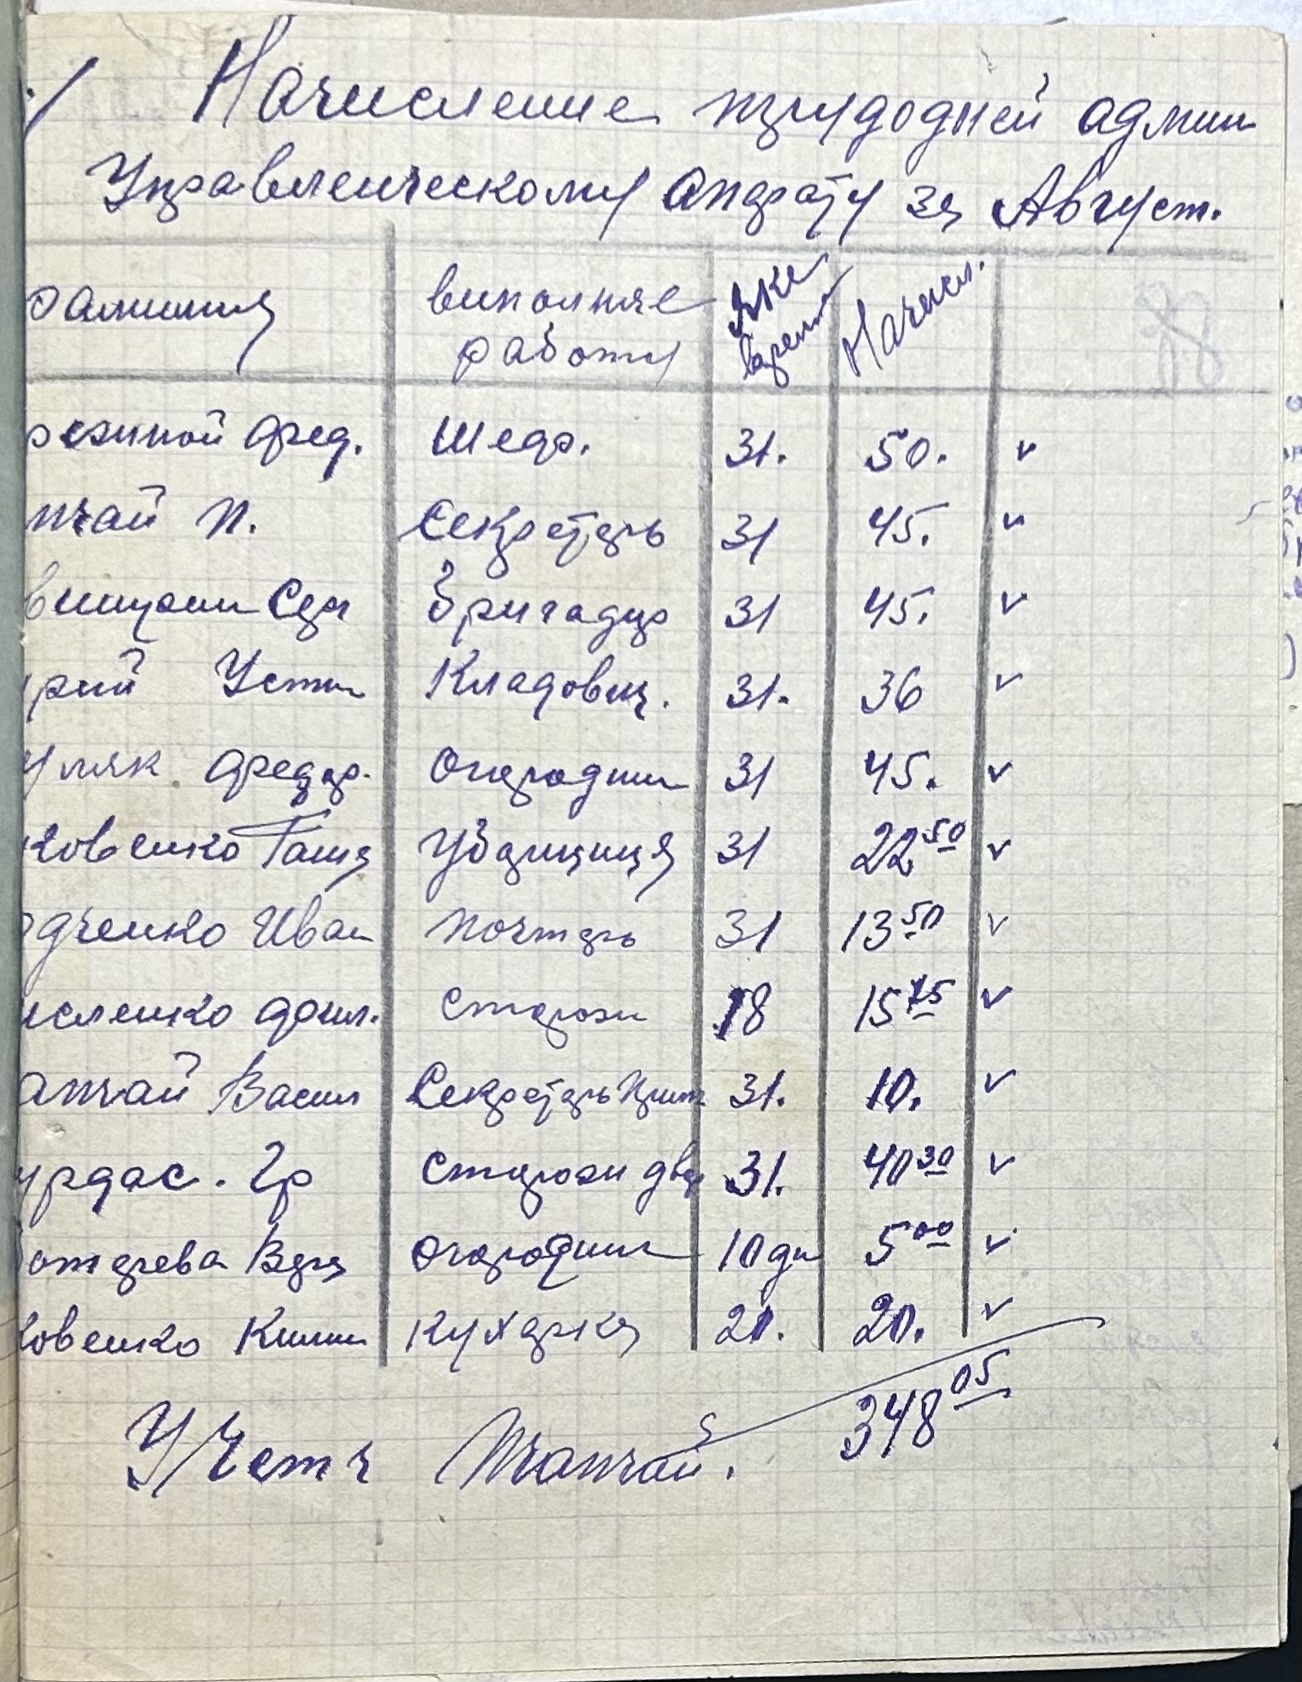 Начисление трудодней админ
Управленческому апарату за Август.
фамилия виполняе работу Яке время Начисл.
режной Фед. Шеф. 31. 50. v
пчай П. Секретарь 31 45. v
Сер Бригадир 31 45. v
рий Устин Кладовщ. 31. 36 v
уляк Федор. Огородник 31 45. v
ковенко Ганя Убарщиця 31 22 50 v
дченко Иван Почтарь 31 13 50 v
исленко Фил. Сторож 18 15 75 v
апчай Васил Секретарь 31. 10. v
урдас. Гр Сторож двор 31. 40 30 v
Вера Огородник 10 дн 5 00 v
ковенко Килин Кухарка 21. 20. v
348 05
Учетч Пчапчай.